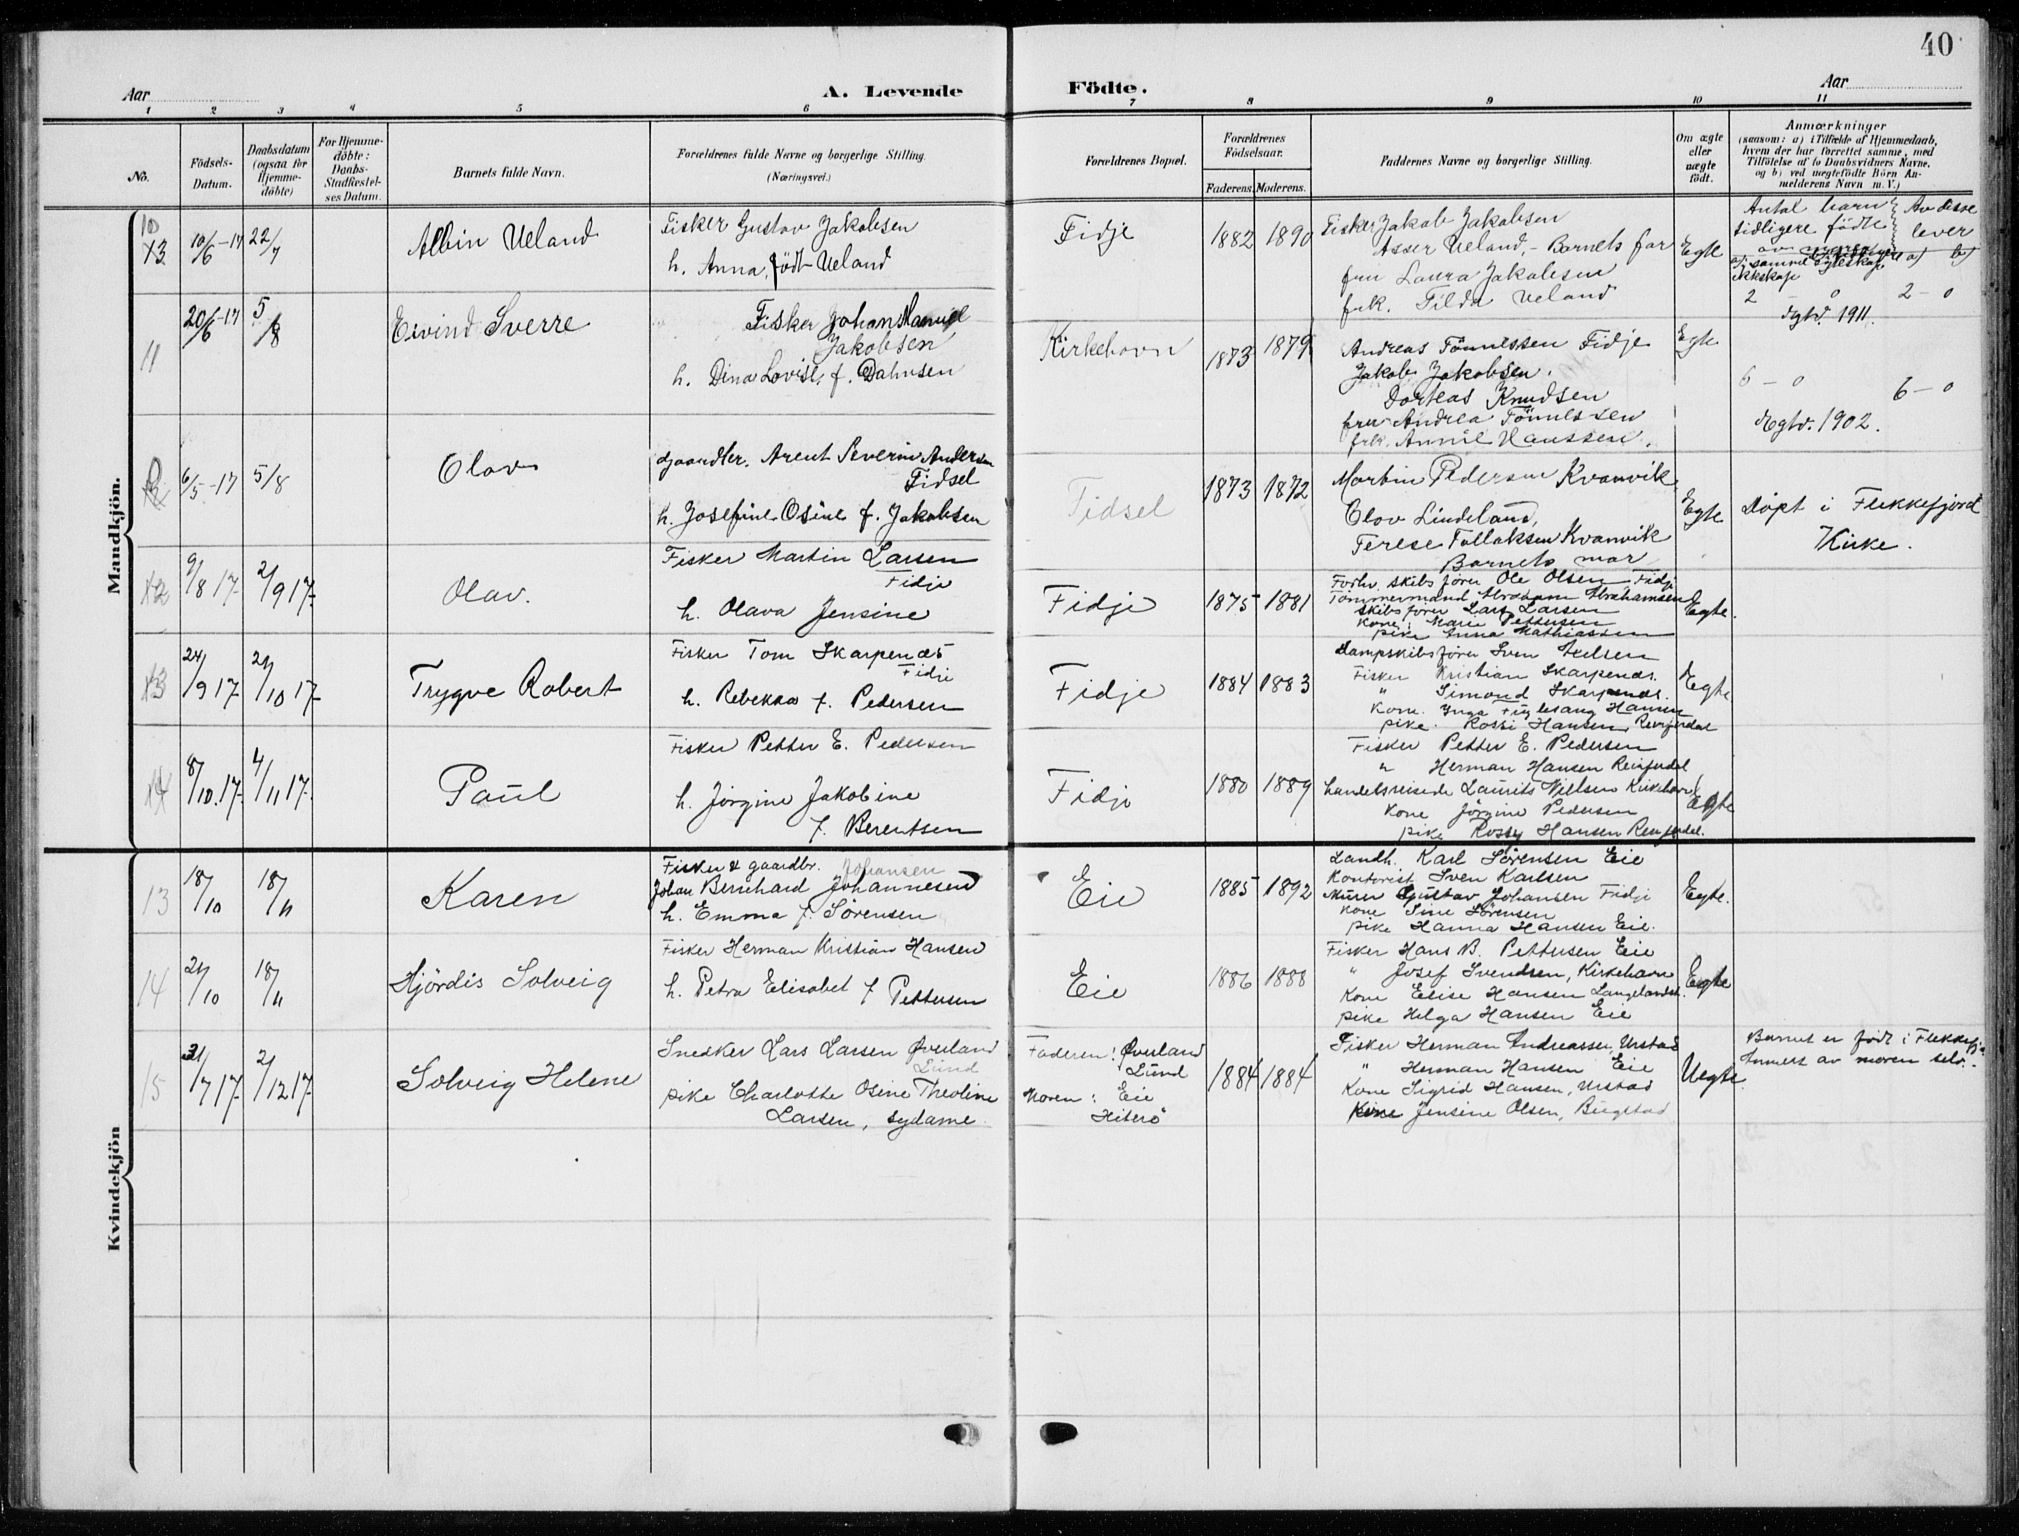 40
Aar
A. Levende Födte.
Aar
1 2 3 4 5 6 7 8 9 10 11
No.
Födsels-Datum.
Daabsdatum (ogsaa for Hjemme-döbte)
For Hjemme-döbte: Daabs-Stadfæstel-ses Datum.
Barnets fulde Navn.
Forældrenes fulde Navne og borgerlige Stilling. (Næringsvei.)
Forældrenes Bopæl.
Forældrenes Födselsaar.
Faderens. Moderens.
Faddernes Navne og borgerlige Stilling.
Om ægte eller uægte födt.
Anmærkninger
(saasom: a) i Tilfælde af Hjemmedaab, hvem der har forrettet samme, med Tilföielse af to Daabsvidners Navne, og b) ved uægtefödte Börn An-melderens Navn m. V.)
Mandkjön.
10
10/6-17 22/7
Albin Ueland
Fisker Gustav Jakobsen
h. Anna, født Ueland
Fidje
1882 1890
Fisker Jakob Jakobsen
Asser Ueland, - Barnets far
fru Laura Jakobsen
frk. Tilda Ueland
Egte
Antal barn tidligere födte
Av disse lever
a) b)
2 - 0 2 - 0
Egtv. 1911.
11
20/6-17 5/8
Eivind Sverre
Fisker Johan Samuel
Jakobsen
h. Dina Lovise, f. Dahnsen
Kirkehavn
1873 1879
Andreas Tönnessen Fidje
Jakob Jakobsen.
Dorteas Knudsen
fru Andrea Tönnessen
frk. Annie Hanssen.
Egte
6 - 0 6 - 0
Egtv. 1902.
6/5-17 5/8
Olav
Gaardbr. Arent Severin Andersen
Fidsel
h. Josefine Osine f. Jakobsen
Fidsel
1873 1872
Martin Pedersen Kvanvik
Olov Lindeland,
Terese Tollaksen Kvanvik
Barnets mor
Egte
Döpt i Flekkefjord
Kirke.
12
9/8 17. 2/9 17.
Olav.
Fisker Martin Larsen
Fidje
h. Olava Jensine
Fidje
1875 1881
Forhv. skibsfører Ole Olsen Fidje
Tömmermand Abraham Abrahamsen
Skibsfører Lars Larsen
Kone: Marie Pettersen
pike Anna Mathiassen
Egte.
13
24/9 17. 21/10 17.
Trygve Robert
Fisker Tom Skarpenæs
Fidje
h. Rebekka f. Pedersen
Fidje
1884 1883
Dampskibsfører Sven Axelsen
Fisker Kristian Skarpenæs.
" Simond Skarpenæs.
Kone. Inga Hansen
pike. Rossi Hansen
Egte
14
8/10. 17. 4/11 17.
Paul
Fisker Petter E. Pedersen
h. Jörgine Jakobine
f. Berentsen
Fidje
1880 1889
Fisker Petter E. Pedersen
" Herman Hansen
Handelsreisende Laurits Nielsen Kirkehavn
Kone Jörgine Pedersen
pike Rossy Hansen
Egte
Kvindekjön
13
18/10 18/11
Karen
Fisker & gaardbr. Johansen
Johan Bernhard Johannesen
h. Emma f. Sørensen
Eie
1885 1892
Landh. Karl Sørensen Eie
Kontorist Sven Karlsen
Murer Gustav Johansen Fidje
Kone Sine Sörensen
pike Hanna Hansen Eie.
Egte.
14
21/10 18/11
Hjördis Solveig
Fisker Herman Kristian Hansen
h. Petra Elisabet f Pettersen
Eie
1886 1888
Fisker Hans B. Pettersen Eie
" Josef Svendsen, Kirkehavn
Kone Elise Hansen
pike Helga Hansen Eie
Egte
15
21/7 17. 2/12 17.
Solveig Helene
Snedker Lars Larsen Øverland
Lund
pike Charlotte Osine Theoline
Larsen, sydame
Faderen: Øverland
Lund
Moren: Eie
Hiterö
1884 1884
Fisker Herman Andreassen, Urstad
" Herman Hansen Eie
Kone Sigrid Hansen, Urstad
Kone Jensine Olsen, Buestad
Uegte.
Barnet er födt i Flekkefj.
Anmelt av moren selv.